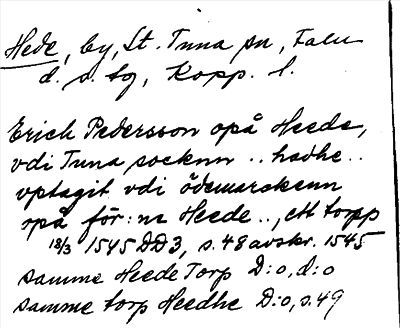 Hede, by, St. Tuna sn, Falu
d. s. tg, Kopp. l.
Erich Pedersson opå Heede,
vdi Tuna socknn .. hadhe ..
vptagit vdi ödemarckenn
opå för:ne Heede .., ett torpp
18/3 1545 DD3, s. 48 avskr. 1545
samme Heede Torp D:o, d:o
samme torp Heedhe D:o, s. 49